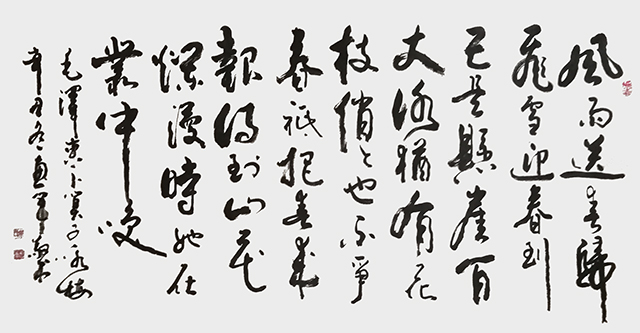 風雨送春歸
飛雪迎春到
已是懸崖百
丈冰猶有花
枝俏々也不爭
春祇把春來
報待到山花
爛漫時她在
叢中笑
毛澤東卜算子永梅
辛丑冬